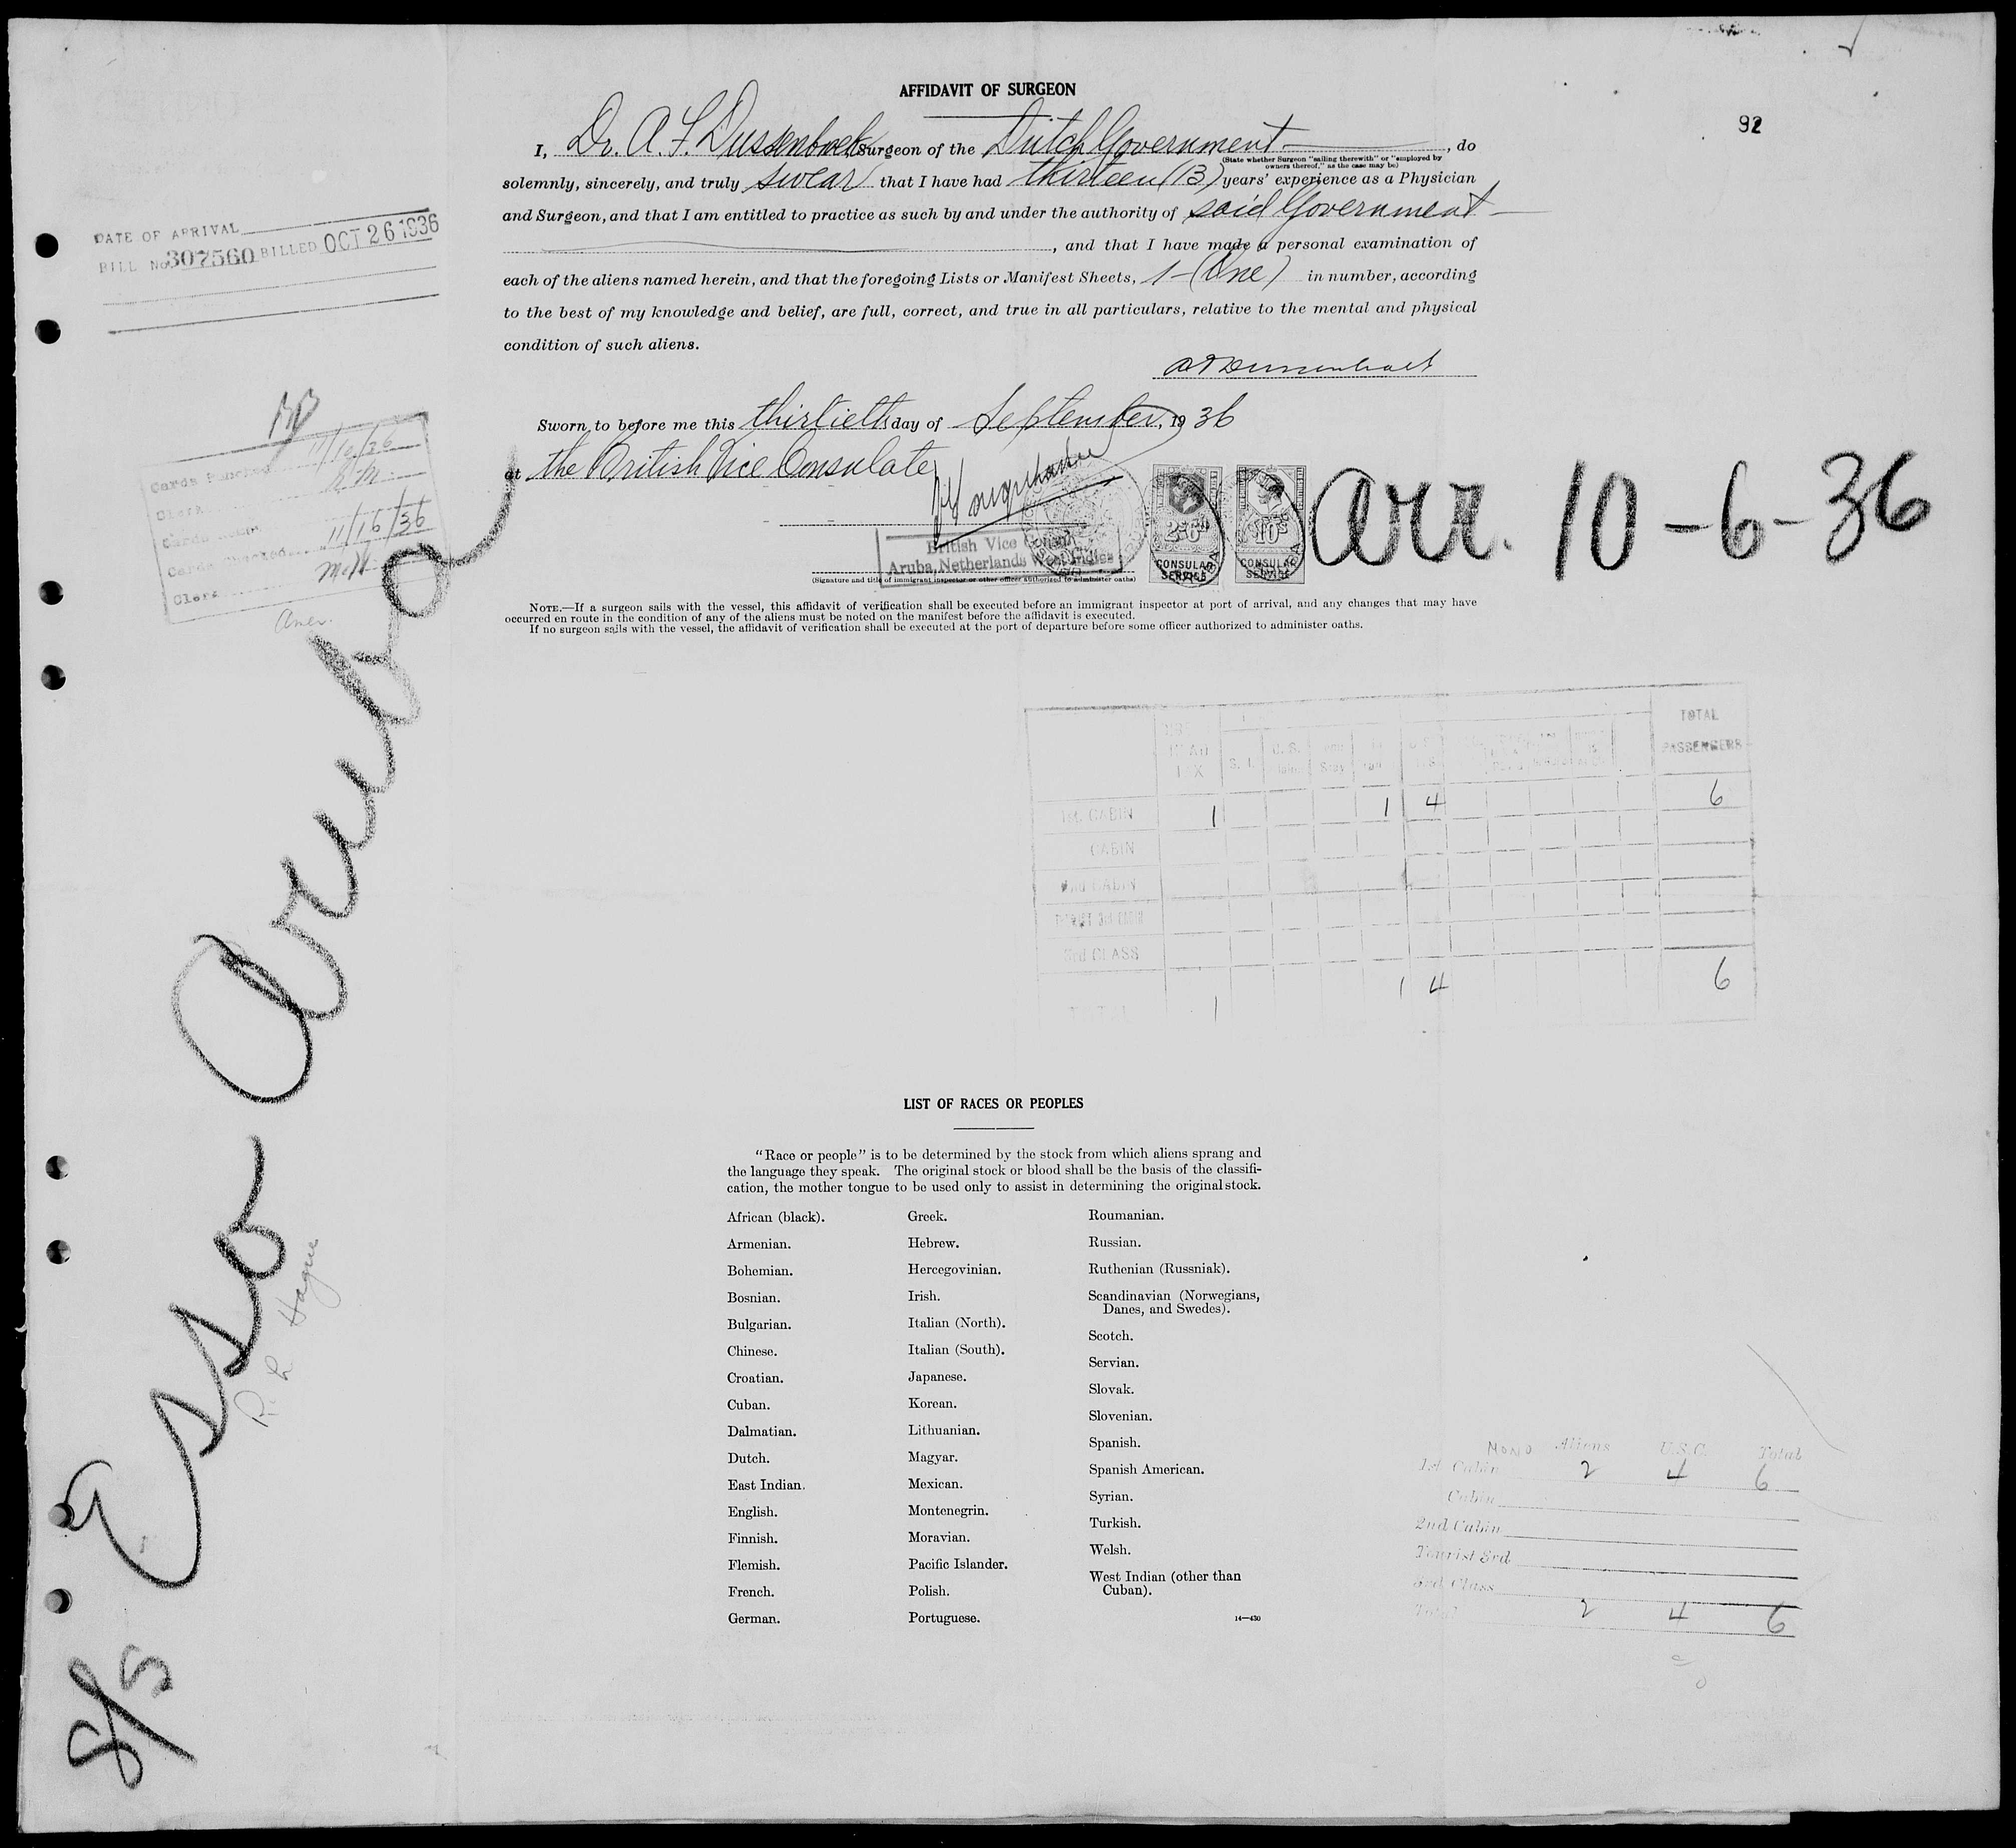 92
AFFIDAVIT OF SURGEON
I, Dr. A. F. Dussenbroek Surgeon of the Dutch Government, do
(State whether Surgeon "sailing therewith" or "employed by
owners thereof," as the case may be)
solemnly, sincerely, and truly swear that I have had thirteen (13) years' experience as a Physician
and Surgeon, and that I am entitled to practice as such by and under the authority of said Government
, and that I have made a personal examination of
each of the aliens named herein, and that the foregoing Lists or Manifest Sheets, 1-(One) in number, according
to the best of my knowledge and belief, are full, correct, and true in all particulars, relative to the mental and physical
condition of such aliens.
Sworn to before me this thirtieth day of September, 1936
at the British Vice Consulate
British Vice Consul
Aruba, Netherlands West Indies
2s6d
CONSULAR
SERVICE
10s
CONSULAR
SERVICE
(Signature and title of immigrant inspector or other officer authorized to administer oaths)
arr. 10-6-36
NOTE.—If a surgeon sails with the vessel, this affidavit of verification shall be executed before an immigrant inspector at port of arrival, and any changes that may have
occurred en route in the condition of any of the aliens must be noted on the manifest before the affidavit is executed.
If no surgeon sails with the vessel, the affidavit of verification shall be executed at the port of departure before some officer authorized to administer oaths.
DATE OF ARRIVAL
BILL No 307560 BILLED OCT 26 1936
Cards Punched 11/16/36
Clerk R M
Cards
Cards Checked 11/16/36
Clerk
S/S Esso Aruba
R. L. Hague
HEAD
TAX
S. I.
U. S.
TOTAL
PASSENGERS
1st. CABIN 1 1 4 6
CABIN
2nd CABIN
TOURIST 3rd CABIN
3rd CLASS
TOTAL 1 1 4 6
LIST OF RACES OR PEOPLES
"Race or people" is to be determined by the stock from which aliens sprang and
the language they speak. The original stock or blood shall be the basis of the classifi-
cation, the mother tongue to be used only to assist in determining the original stock.
African (black).
Armenian.
Bohemian.
Bosnian.
Bulgarian.
Chinese.
Croatian.
Cuban.
Dalmatian.
Dutch.
East Indian.
English.
Finnish.
Flemish.
French.
German.
Greek.
Hebrew.
Hercegovinian.
Irish.
Italian (North).
Italian (South).
Japanese.
Korean.
Lithuanian.
Magyar.
Mexican.
Montenegrin.
Moravian.
Pacific Islander.
Polish.
Portuguese.
Roumanian.
Russian.
Ruthenian (Russniak).
Scandinavian (Norwegians,
Danes, and Swedes).
Scotch.
Servian.
Slovak.
Slovenian.
Spanish.
Spanish American.
Syrian.
Turkish.
Welsh.
West Indian (other than
Cuban).
14—430
Aliens U.S.C. Total
1st Cabin 2 4 6
Cabin
2nd Cabin
Tourist 3rd
3rd Class
Total 2 4 6